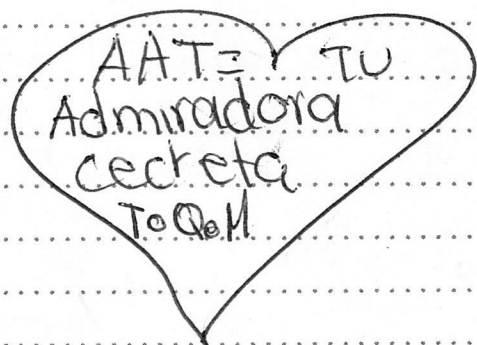 AAT= TU
Admiradora
cecreta
ToQoM